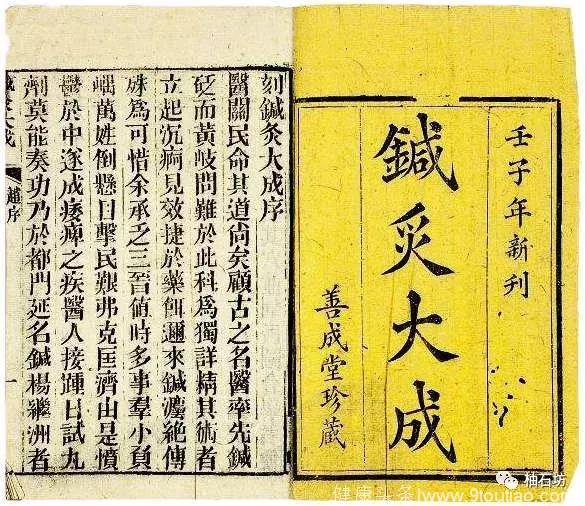 壬子年新刊
鍼灸大成
善成堂珍藏
刻鍼灸大成序
醫關民命其道尚矣顧古之名醫率先鍼
砭而黃岐問難於此科爲獨詳精其術者
立起沉痾見效捷於藥餌邇來鍼灋絶傳
殊爲可惜余承乏三晉值時多事羣小負
嵎萬姓倒懸目擊民艱弗克匡濟由是憤
鬱於中遂成痿痺之疾醫人接踵日試九
劑莫能奏功乃於都門延名鍼楊繼洲者
灸大成 趙序 一
柚石坊
健康头条/www.9toutiao.com